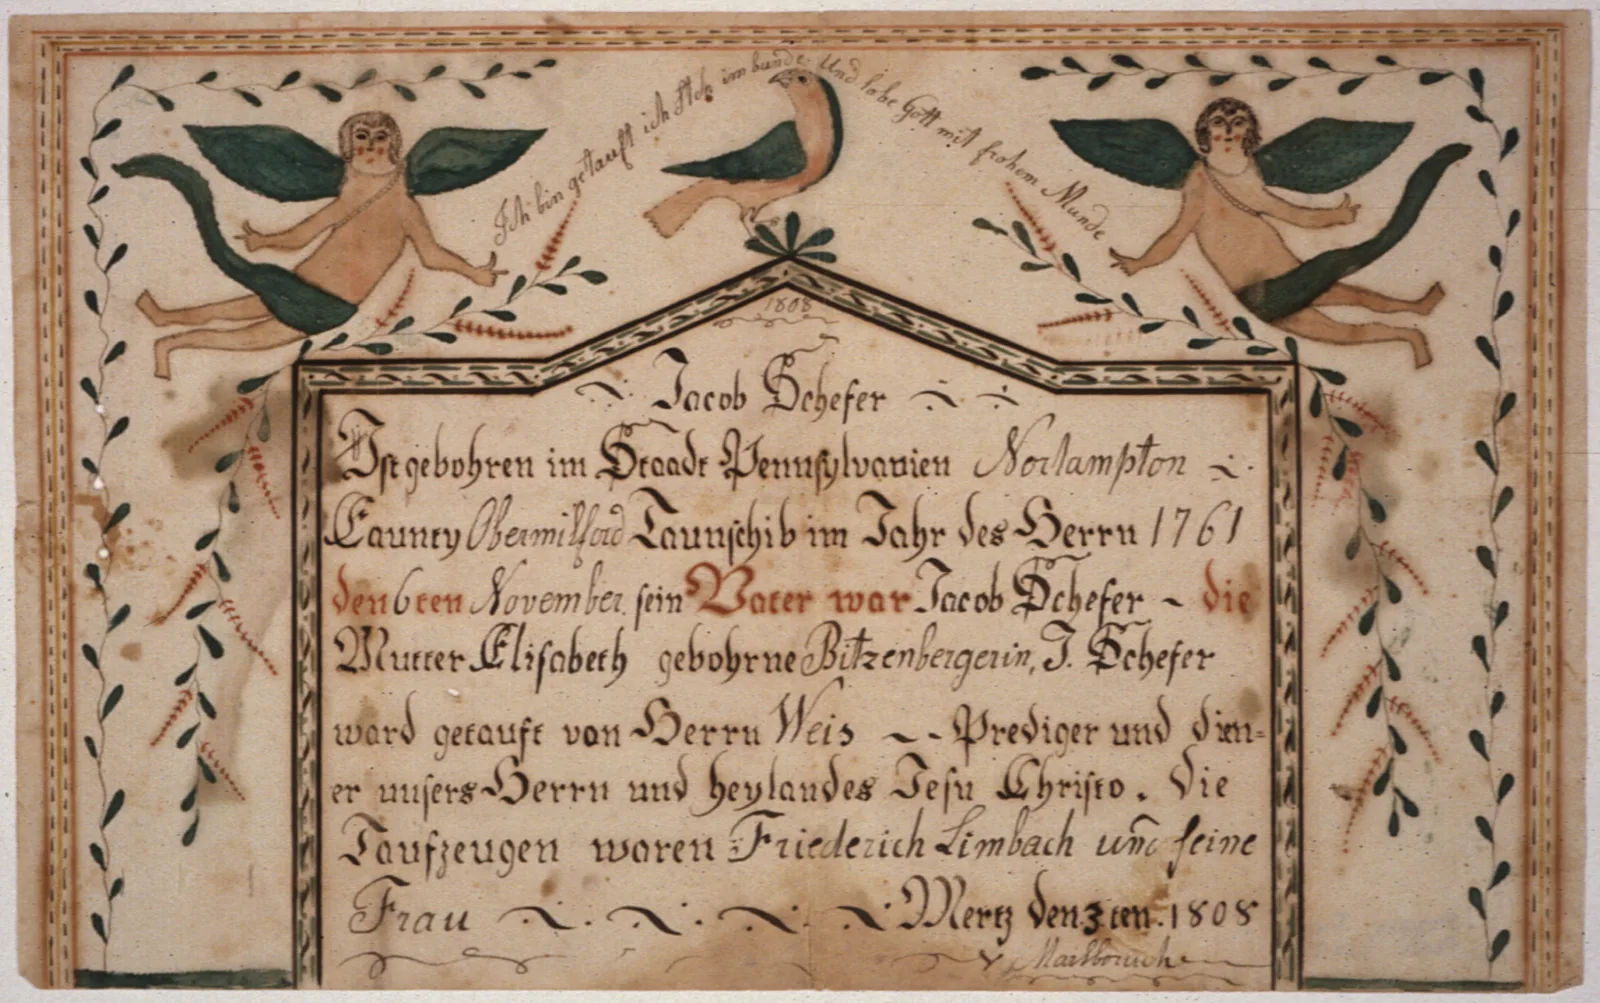 Ich bin getauft ich steh im bunde Und lobe Gott mit frohem Munde
1808
Jacob Schefer
Ist gebohren im Staadt Pennsylvanien Nortampton
Caunty Obermilford Taunschib im Jahr des Herrn 1761
den 6ten November sein Vater war Jacob Schefer - die
Mutter Elisabeth gebohrne Bitzenbergerin, J. Schefer
ward getauft von Herrn Weis - - Prediger und dien=
er unsers Herrn und heylandes Jesu Christo. die
Taufzeugen waren Friederich Limbach und seine
Frau Mertz den 3ten. 1808